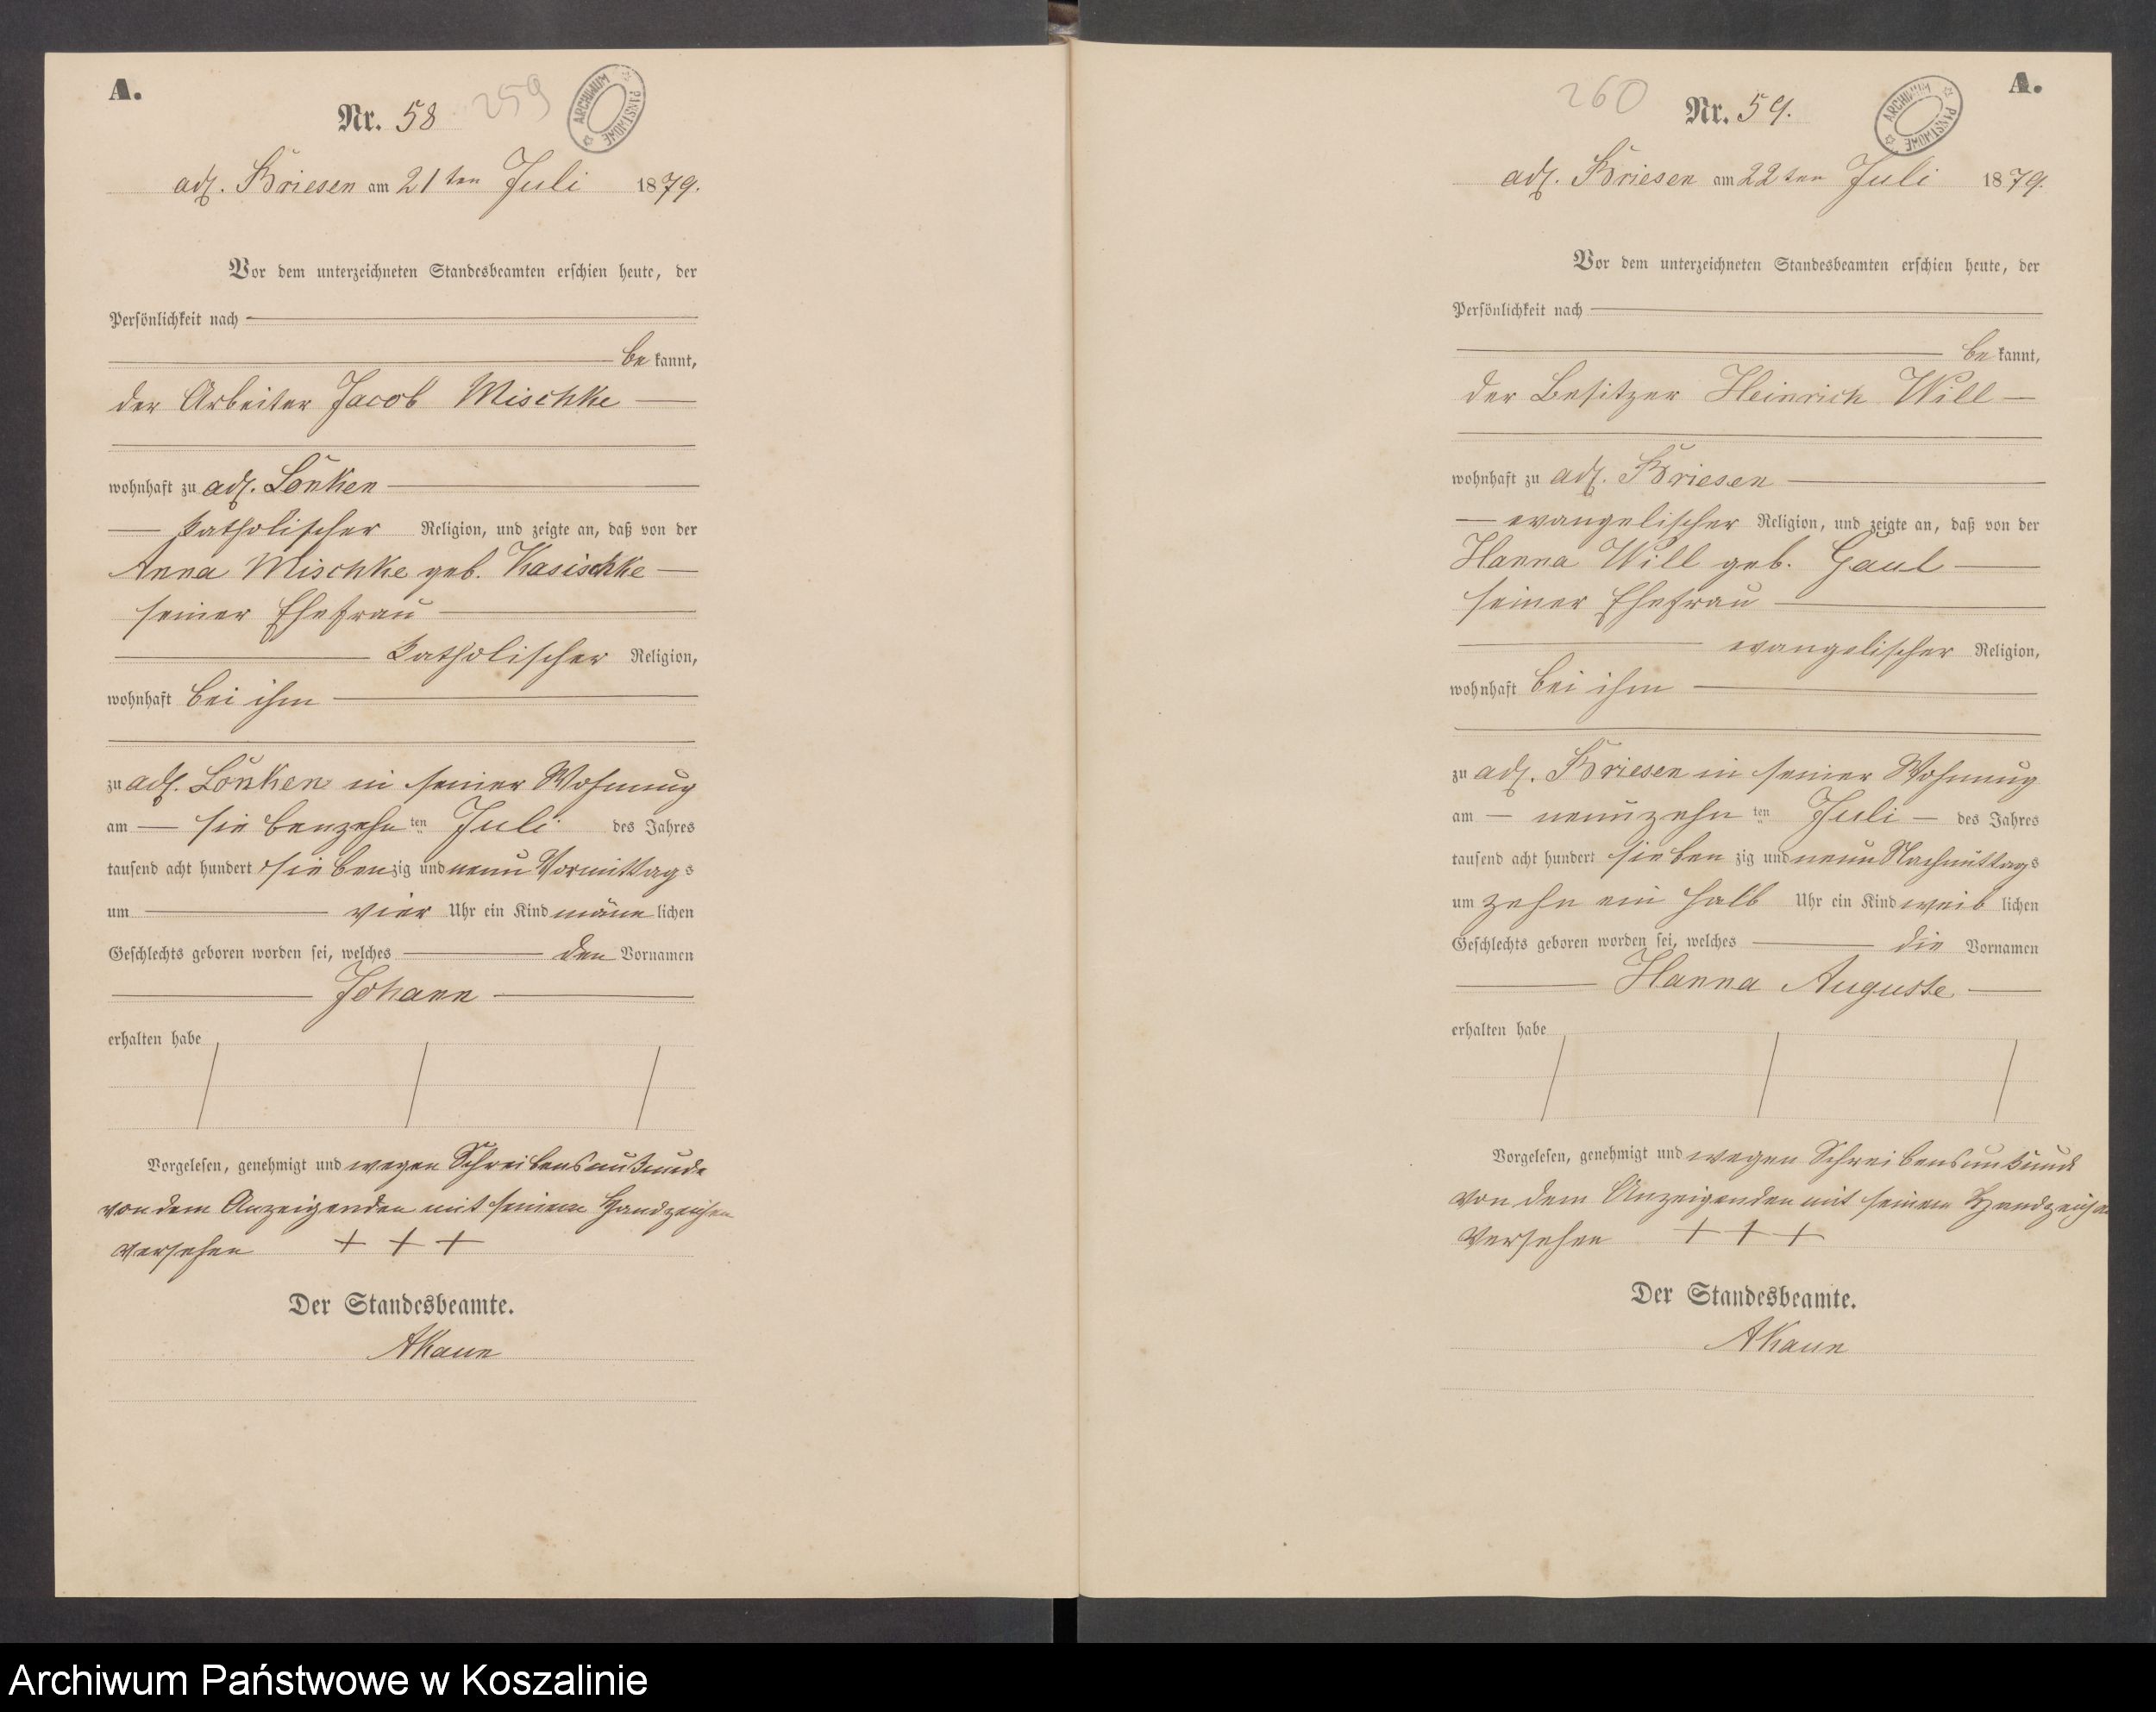 A.
Nr. 58
259
ARCHIWUM PAŃSTWOWE
adl. Briesen am 21ten Juli 1879.
Vor dem unterzeichneten Standesbeamten erschien heute, der
Persönlichkeit nach
be kannt,
der Arbeiter Jacob Mischke
wohnhaft zu adl. Lonken
katholischer Religion, und zeigte an, daß von der
Anna Mischke geb. Kasischke
seiner Ehefrau
katholischer Religion,
wohnhaft bei ihm
zu adl. Lonken in seiner Wohnung
am siebenzehn ten Juli des Jahres
tausend acht hundert siebenzig und neun Vormittags
um vier Uhr ein Kind männlichen
Geschlechts geboren worden sei, welches den Vornamen
Johann
erhalten habe
Vorgelesen, genehmigt und wegen Schreibensunkunde
von dem Anzeigenden mit seinem Handzeichen
versehen + + +
Der Standesbeamte.
AKaun
260
Nr. 59.
ARCHIWUM PAŃSTWOWE
A.
adl. Briesen am 22ten Juli 1879.
Vor dem unterzeichneten Standesbeamten erschien heute, der
Persönlichkeit nach
be kannt,
der Besitzer Heinrich Will
wohnhaft zu adl. Briesen
evangelischer Religion, und zeigte an, daß von der
Hanna Will geb. Gaul
seiner Ehefrau
evangelischer Religion,
wohnhaft bei ihm
zu adl. Briesen in seiner Wohnung
am neunzehn ten Juli des Jahres
tausend acht hundert siebenzig und neun Nachmittags
um zehn ein halb Uhr ein Kind weiblichen
Geschlechts geboren worden sei, welches die Vornamen
Hanna Auguste
erhalten habe
Vorgelesen, genehmigt und wegen Schreibensunkunde
von dem Anzeigenden mit seinem Handzeichen
versehen + + +
Der Standesbeamte.
AKaun
Archiwum Państwowe w Koszalinie